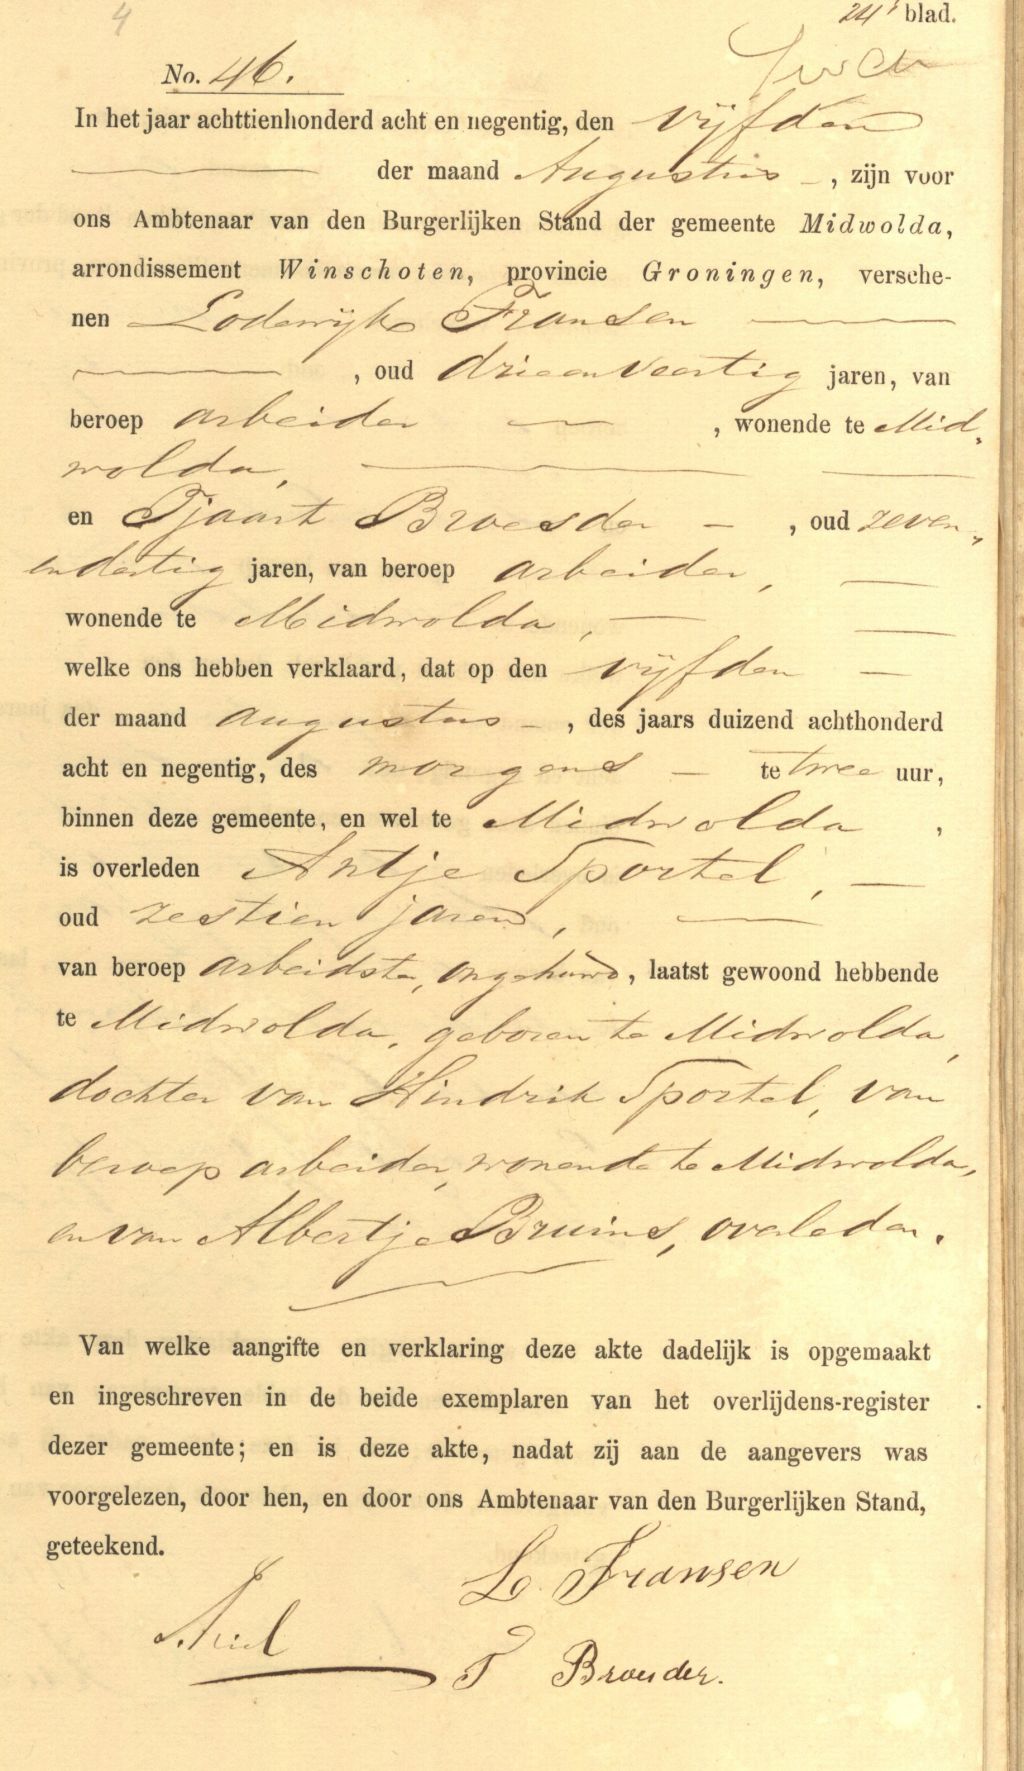 4
24e blad.
No. 46.
In het jaar achttienhonderd acht en negentig, den vijfden
der maand Augustus, zijn voor
ons Ambtenaar van den Burgerlijken Stand der gemeente Midwolda,
arrondissement Winschoten, provincie Groningen, versche-
nen Lodewijk Fransen
, oud drieenveertig jaren, van
beroep arbeider, wonende te Mid„
wolda,
en Tjaart Broesder, oud zeven„
endertig jaren, van beroep arbeider,
wonende te Midwolda,
welke ons hebben verklaard, dat op den vijfden
der maand augustus, des jaars duizend achthonderd
acht en negentig, des morgens te twee uur,
binnen deze gemeente, en wel te Midwolda,
is overleden Antje Sportel,
oud zestien jaren,
van beroep arbeidster, ongehuwd, laatst gewoond hebbende
te Midwolda, geboren te Midwolda,
dochter van Hindrik Sportel, van
beroep arbeider, wonende te Midwolda,
en van Albertje Bruins, overleden.
Van welke aangifte en verklaring deze akte dadelijk is opgemaakt
en ingeschreven in de beide exemplaren van het overlijdens-register
dezer gemeente; en is deze akte, nadat zij aan de aangevers was
voorgelezen, door hen, en door ons Ambtenaar van den Burgerlijken Stand,
geteekend.
L. Fransen
T Broesder.